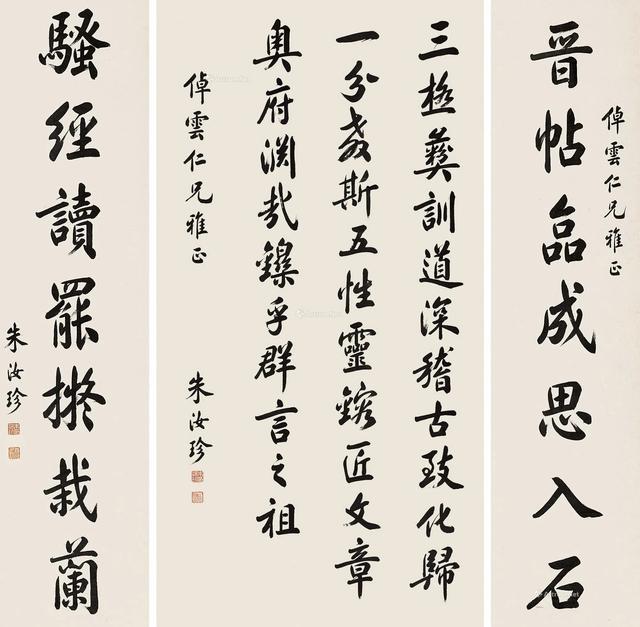 晋帖品成思入石
倬雲仁兄雅正
三極彝訓道深稽古致化歸
一分教斯五性靈鎔匠文章
奧府淵哉鑠乎群言之祖
倬雲仁兄雅正
朱汝珍
騷經讀罷擬栽蘭
朱汝珍